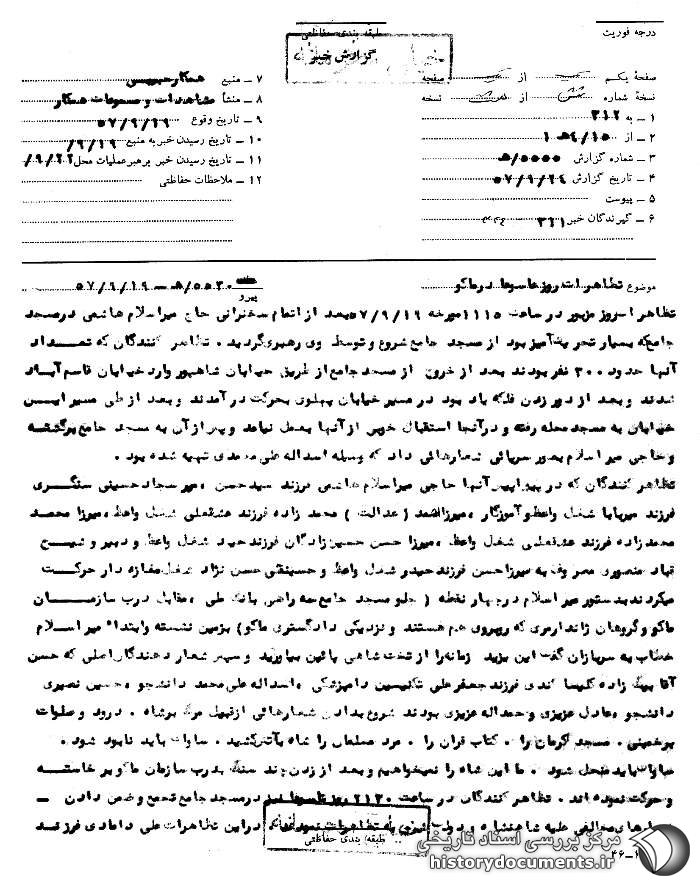 درجه فوریت
طبقه بندی حفاظتی
گزارش خبر
صفحه یکم از صفحه
نسخه شماره شش از نسخه
۱ – به ۳۱۲
۲ – از ۱۵/۴ه ۱
۳ – شماره گزارش ۵۵۵۵/ه
۴ – تاریخ گزارش ۵۷/۹/۲۴
۵ – پیوست
۶ – گیرندگان خبر ۳۲۱
۷ – منبع همکار حبیبی
۸ – منشأ مشاهدات و مسموعات همکار
۹ – تاریخ وقوع ۵۷/۹/۱۹
۱۰ – تاریخ رسیدن خبر به منبع ۹/۱۹/
۱۱ – تاریخ رسیدن خبر برهبر عملیات محل ۹/۲۲/
۱۲ – ملاحظات حفاظتی
موضوع تظاهرات روز تاسوعا در ماکو
پیرو ۵۵۳۰/ه – ۵۷/۹/۱۹
تظاهر امروز مزبور در ساعت ۱۱۱۵ مورخه ۵۷/۹/۱۹ بعد از اتمام سخنرانی حاج میراسلام هاشمی در مسجد
جامع که بسیار تحریک آمیز بود از مسجد جامع شروع و توسط وی رهبری گردید . تظاهر کنندگان که تعداد
آنها حدود ۳۰۰ نفر بودند بعد از خروج از مسجد جامع از طریق خیابان شاهپور وارد خیابان قاسم آباد
شدند و بعد از دور زدن فلکه یاد بود در مسیر خیابان پهلوی بحرکت در آمدند و بعد از طی مسیر ایـن
خیابان به مسجد محله رفته و در آنجا استقبال خوبی از آنها بعمل نیامد و پس از آن به مسجد جامع برگشته
و حاجی میر اسلام بطور سرپائی شعارهائی داد که وسیله اسداله علی محمدی تهیه شده بود .
تظاهر کنندگان که در پیشاپیش آنها حاجی میراسلام هاشمی فرزند سید حسن ، میر سجاد حسینی سنگری
فرزند میربابا شغل واعظ و آموزگار ، میرزا احمد ( عدالت ) محمد زاده فرزند عشقعلی شغل واعظ ، میرزا محمد
محمد زاده فرزند عشقعلی شغل واعظ ، میرزا حسن حسین زادگان فرزند حیدر شغل واعظ و دبیر و شیـخ
قباد منصوری معروف به میرزا حسن فرزند حیدر شغل واعظ و حسینقلی حسن نژاد شغل مغازه دار حرکت
میکردند بدستور میر اسلام در چهار نقطه ( جلو مسجد جامع سه راهی بانک ملی ، مقابل درب سازمـــان
ماکو و گروهان ژاندارمری که روبروی هم هستند و نزدیکی دادگستری ماکو ) بزمین نشسته و ابتداء میر اسـلام
خطاب به سربازان گفت این یزید زمانه را از تخت شاهی پائین بیاورید و سپس شعار دهندگان اصلی که حسن
آقا بیگ زاده کلیسا کندی فرزند جعفرعلی تکنیسین دامپزشکی ، اسداله علی محمد دانشجو ، حسین نصیری
دانشجو ، عادل عزیزی و حمداله عزیزی بودند شروع بدادن شعارهائی از قبیل مرگ بر شاه . درود و صلوات
بر خمینی . مسجد کرمان را . کتاب قران را . مرد مسلمان را شاه بآتش کشید . ساواک باید نابود شود .
ساواک باید منحل شود . ما این شاه را نمیخواهیم و بعد از زدن چند سنگ بدرب سازمان ماکو بر خاستـه
و حرکت نموده اند . تظاهر کنندگان در ساعت ۲۱۳۰ روز تاسوعا نیز در مسجد جامع تجمع و ضمن دادن –
شعارهای مخالفی علیه شاهنشاه و دولت شروع به تظاهرات نمودند در این تظاهرات علی دامادی فرزنـد
طبقه بندی حفاظتی
مرکز بررسی اسناد تاریخی
historydocuments.ir